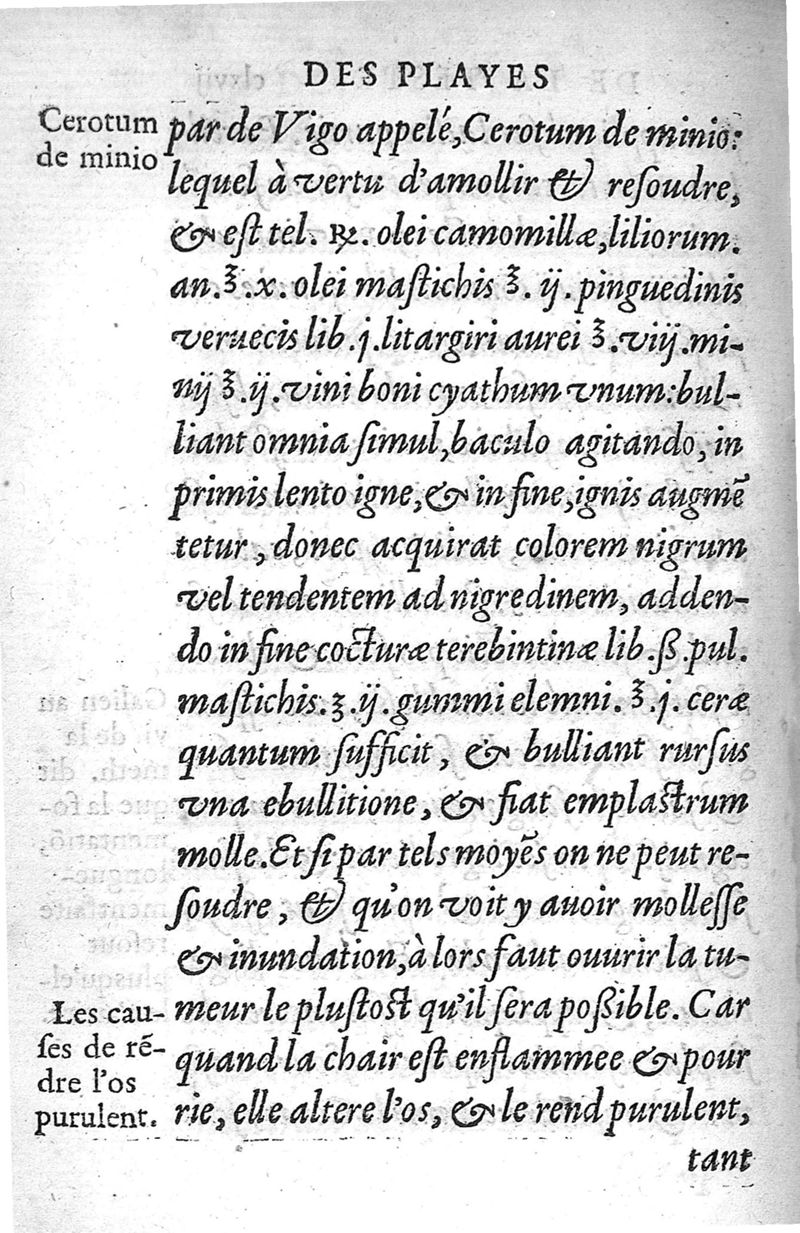 DES PLAYES
Cerotum
de minio
par de Vigo appelé,Cerotum de minio:
lequel à vertu d'amollir & resoudre,
& est tel. ℞. olei camomillæ,liliorum.
an.℥.x. olei mastichis ℥. ij. pinguedinis
veruecis lib.j.litargiri aurei ℥.viij.mi-
nij ℥.ij.vini boni cyathum vnum:bul-
liant omnia simul,baculo agitando, in
primis lento igne,& in fine,ignis augmē
tetur, donec acquirat colorem nigrum
vel tendentem ad nigredinem, adden-
do in fine cocturæ terebintinæ lib.ß.pul.
mastichis.ʒ.ij.gummi elemni. ℥.j. ceræ
quantum sufficit, & bulliant rursus
vna ebullitione, & fiat emplastrum
molle.Et si par tels moyēs on ne peut re-
soudre, & qu'on voit y auoir mollesse
& inundation,à lors faut ouurir la tu-
meur le plustost qu'il sera possible. Car
quand la chair est enflammee & pour
rie, elle altere l'os, & le rend purulent,
Les cau-
ses de rē-
dre l'os
purulent.
tant